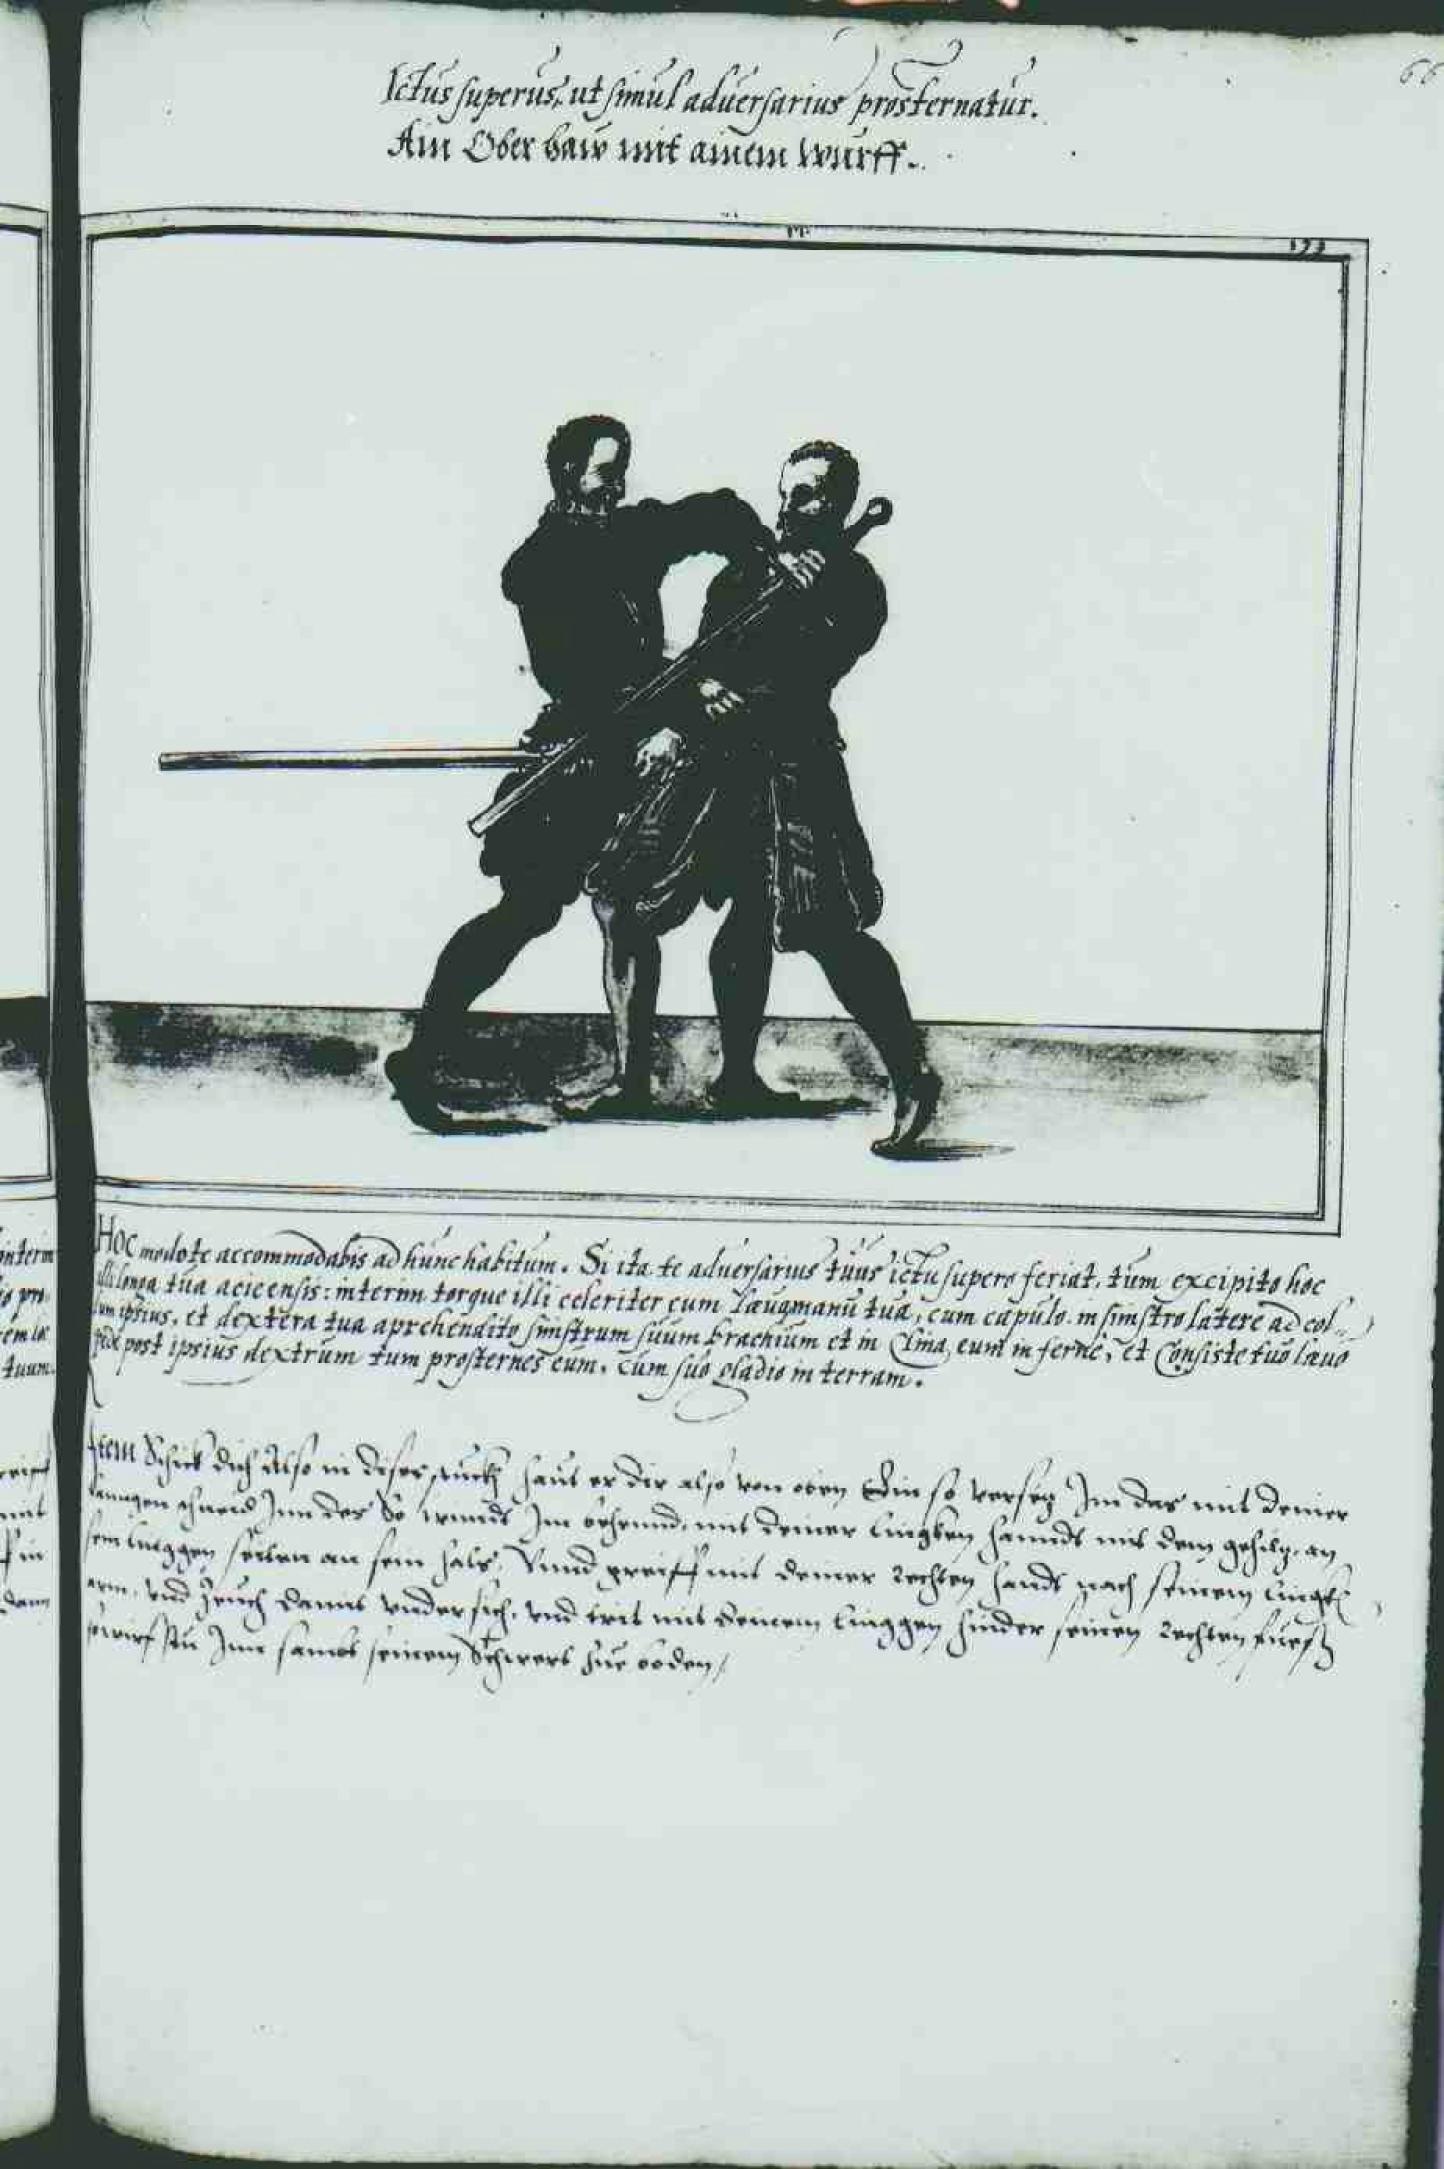 66
Ictus superus, ut simul adversarius prosternatur.
Ain Ober haw mit ainem wurff.
HOC modo te accommodabis ad hunc habitum. Si ita te adversarius tuus ictu supero feriat, tum excipito hoc
illi longa tua acie ensis: interim torque illi celeriter cum laevo manu tua, cum capulo in sinistro latere ad col-
lum ipsius, et dextera tua aprehendito sinistrum suum brachium et in clina eum inferne, et Consiste tuo laevo
pede post ipsius dextrum tum prosternes eum, cum suo gladio in terram.
Item Schick dich Also in diser stuckh haut er dir also von oben Ein so versetz Im das mit deiner
lanngen schneid Inn des So wennd Im behennd mit deiner lingken hannd mit dem gehiltz an
sein linggen seiten an sein hals, Unnd greiff mit deiner rechten handt nach seinem lingken
arm, und zeuch damit undersich, und trit mit deinem linggen hinder seinen rechten fuess
so wirfstu Inn sambt seinem Schwert zue boden,